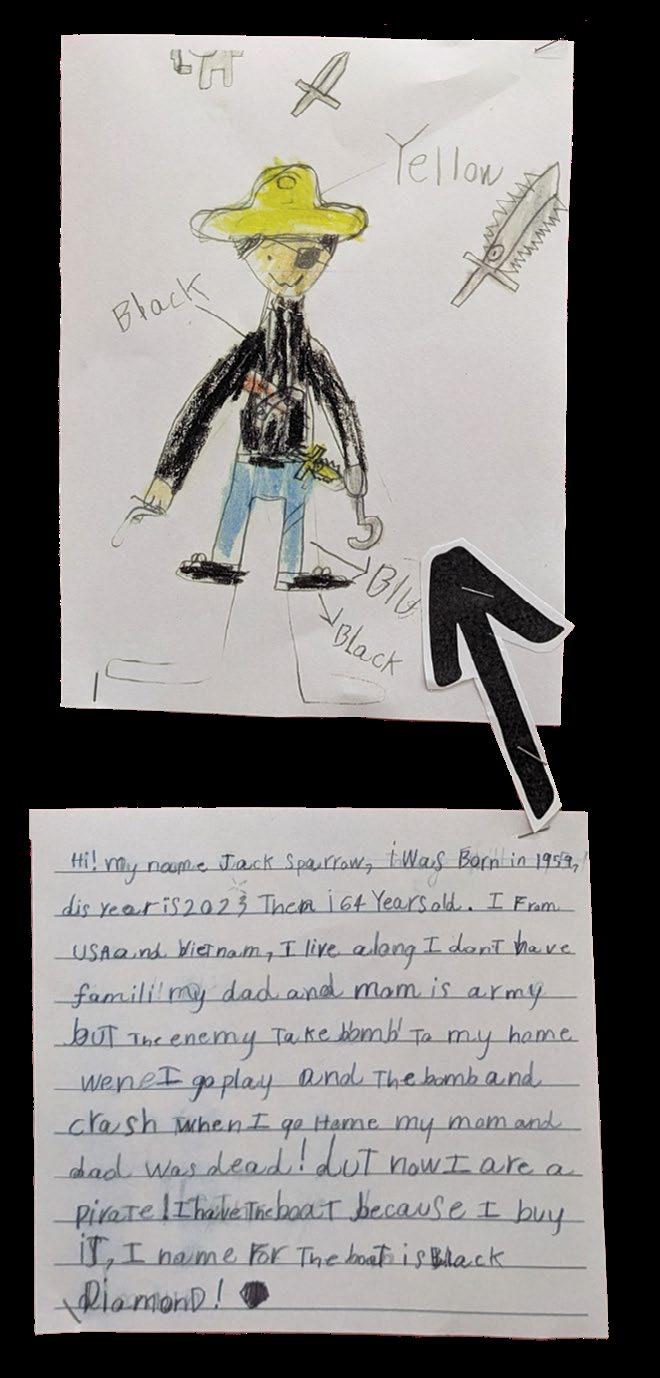 Yellow
Black
Blu
Black
Hi! my name Jack Sparrow, i Was Born in 1959,
dis year is 2023 Then i 64 Years old. I From
USA and Vietnam, I live along I don't have
famili! my dad and mom is army
but The enemy Take bomb To my home
wene I go play and The bomb and
crash when I go Home my mom and
dad was dead! but now I are a
pirate! I have The boat because I buy
iT, I name For The boat is Black
DiamonD!